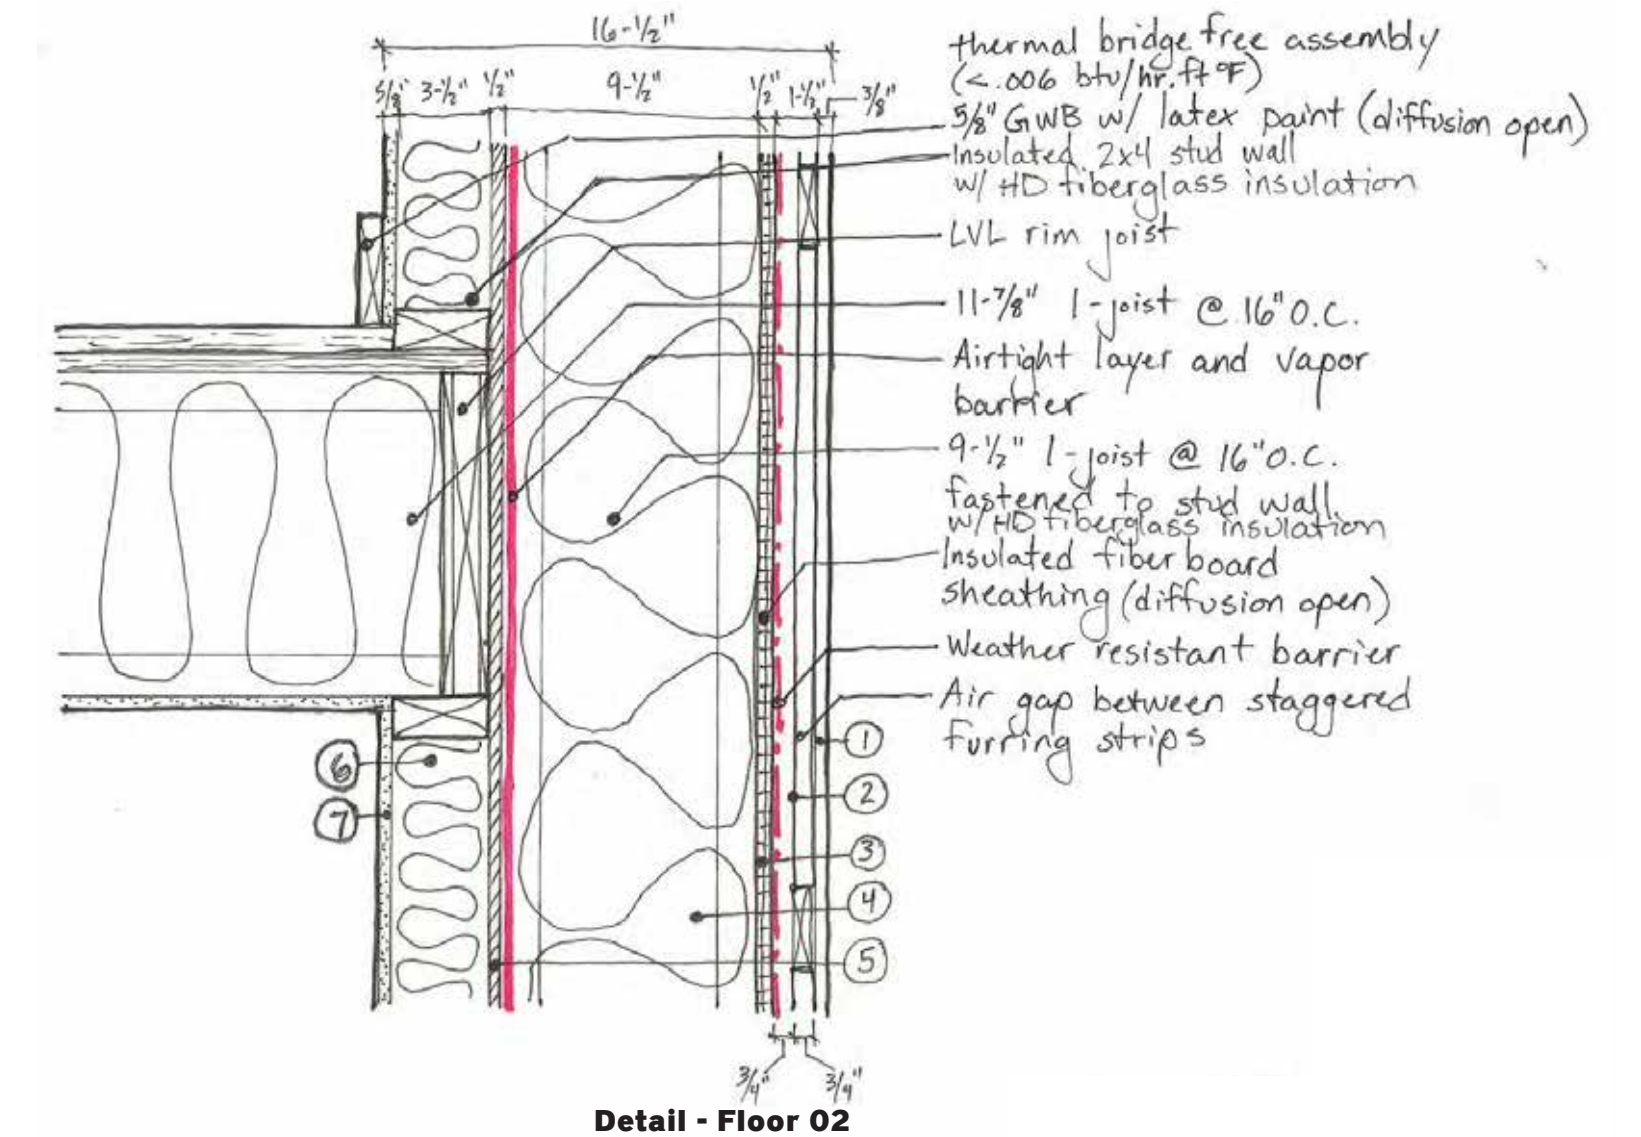 16-1/2"
5/8" 3-1/2" 1/2" 9-1/2" 1/2" 1-1/2" 3/8"
thermal bridge free assembly
(<.006 btu/hr.ft°F)
5/8" GWB w/ latex paint (diffusion open)
Insulated 2x4 stud wall
w/ HD fiberglass insulation
LVL rim joist
11-7/8" I-joist @ 16" O.C.
Airtight layer and vapor
barrier
9-1/2" I-joist @ 16" O.C.
fastened to stud wall
w/ HD fiberglass insulation
Insulated fiber board
sheathing (diffusion open)
Weather resistant barrier
Air gap between staggered
furring strips
1
6
2
7
3
4
5
3/4" 3/4"
Detail - Floor 02